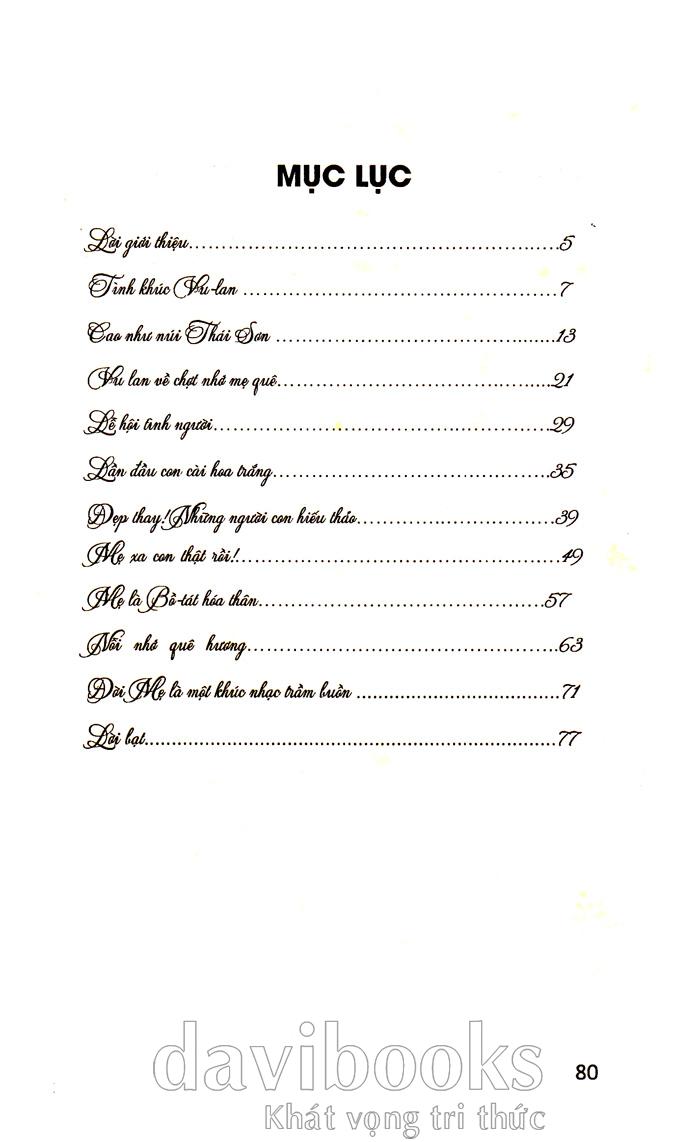 MỤC LỤC
Lời giới thiệu..........5
Tình khúc Vu-lan ..........7
Cao như núi Thái Sơn ..........13
Vu lan về chợt nhớ mẹ quê..........21
Lễ hội tình người..........29
Lần đầu con cài hoa trắng..........35
Đẹp thay! Những người con hiếu thảo..........39
Mẹ xa con thật rồi!..........49
Mẹ là Bồ-tát hóa thân..........57
Nỗi nhớ quê hương..........63
Đời Mẹ là một khúc nhạc trầm buồn ..........71
Lời bạt..........77
davibooks
80
Khát vọng tri thức